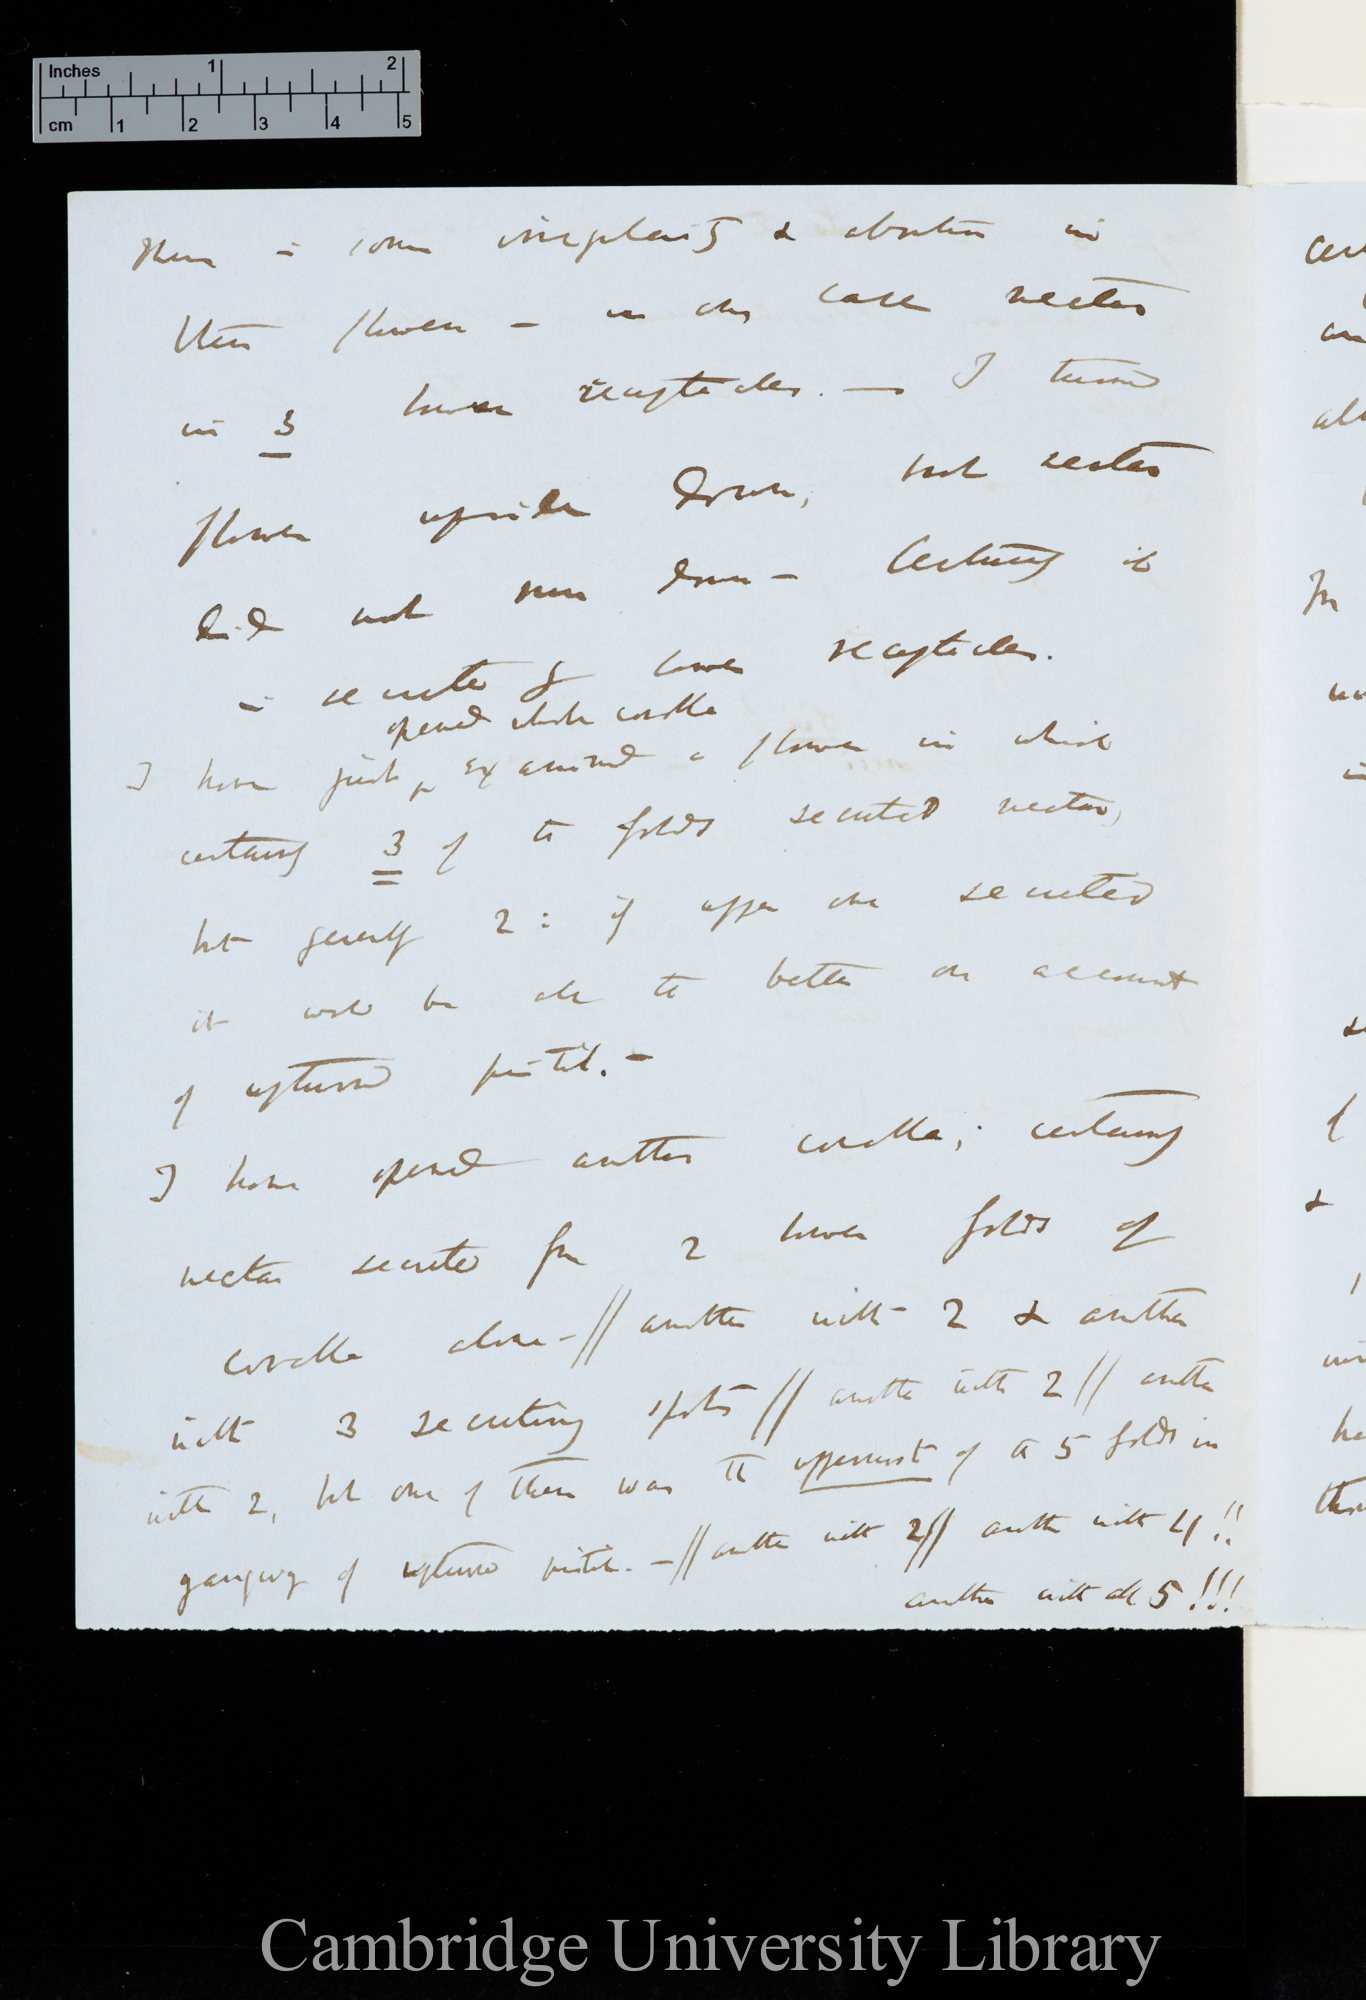 Inches 1 2
cm 1 2 3 4 5
There is some irregularity & abortion in
these flowers — in one case nectar
in 3 lower receptacles. — I turned
flower upside down, but nectar
did not run down — Certainly it
is secreted by lower receptacles.
opened whole corolla
I have just ^ examined a flower in which
certainly 3 of the folds secreted nectar,
but generally 2: if upper one secreted
it would be all the better on account
of upturned pistil. —
I have opened another corolla; certainly
nectar secreted from 2 lower folds of
corolla alone — // another with 2 & another
with 3 secreting spots // another with 2 // another
with 2, but one of them was the uppermost of the 5 folds in
gangway of upturned pistil. — // another with 2 // another with 4!!
another with all 5!!!
Cambridge University Library